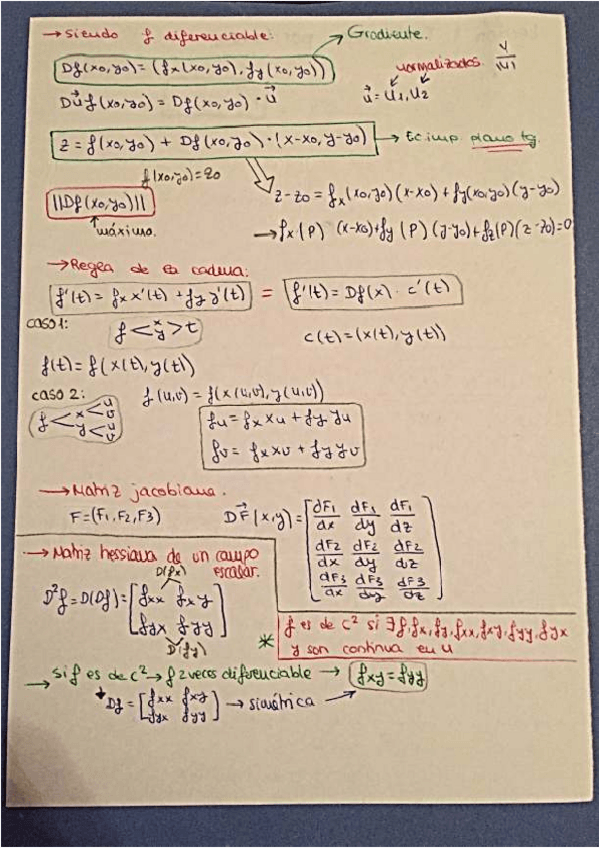 → siendo f diferenciable: → Gradiente.
Df(x0,y0) = (fx(x0,y0), fy(x0,y0))
normalizados v/|v|
Du⃗f(x0,y0) = Df(x0,y0) · u⃗ u⃗ = U1, U2
z = f(x0,y0) + Df(x0,y0) · (x-x0, y-y0) → Ec imp plano tg.
f(x0,y0) = z0
z-z0 = fx(x0,y0)(x-x0) + fy(x0,y0)(y-y0)
||Df(x0,y0)||
máximo.
→ fx(P) (x-x0) + fy(P)(y-y0) + fz(P)(z-z0) = 0
→ Regla de la cadena:
f'(t) = fx x'(t) + fy y'(t) = f'(t) = Df(x) · c'(t)
caso 1:
f < x y > t c(t) = (x(t), y(t))
f(t) = f(x(t), y(t))
caso 2: f(u,v) = f(x(u,v), y(u,v))
f < x < u v
y < u v
fu = fx xu + fy yu
fv = fx xv + fy yv
→ Matriz jacobiana.
F = (F1, F2, F3) DF⃗(x,y) = [dF1/dx dF1/dy dF1/dz
dF2/dx dF2/dy dF2/dz
dF3/dx dF3/dy dF3/dz]
→ Matriz hessiana de un campo
escalar.
D(fx)
D²f = D(Df) = [fxx fxy
fyx fyy]
D(fy)
* f es de C² si ∃ f, fx, fy, fxx, fxy, fyy, fyx
y son continua en U
→ si f es de C² → f 2 veces diferenciable → fxy = fyy
Df = [fxx fxy
fyx fyy] → simétrica